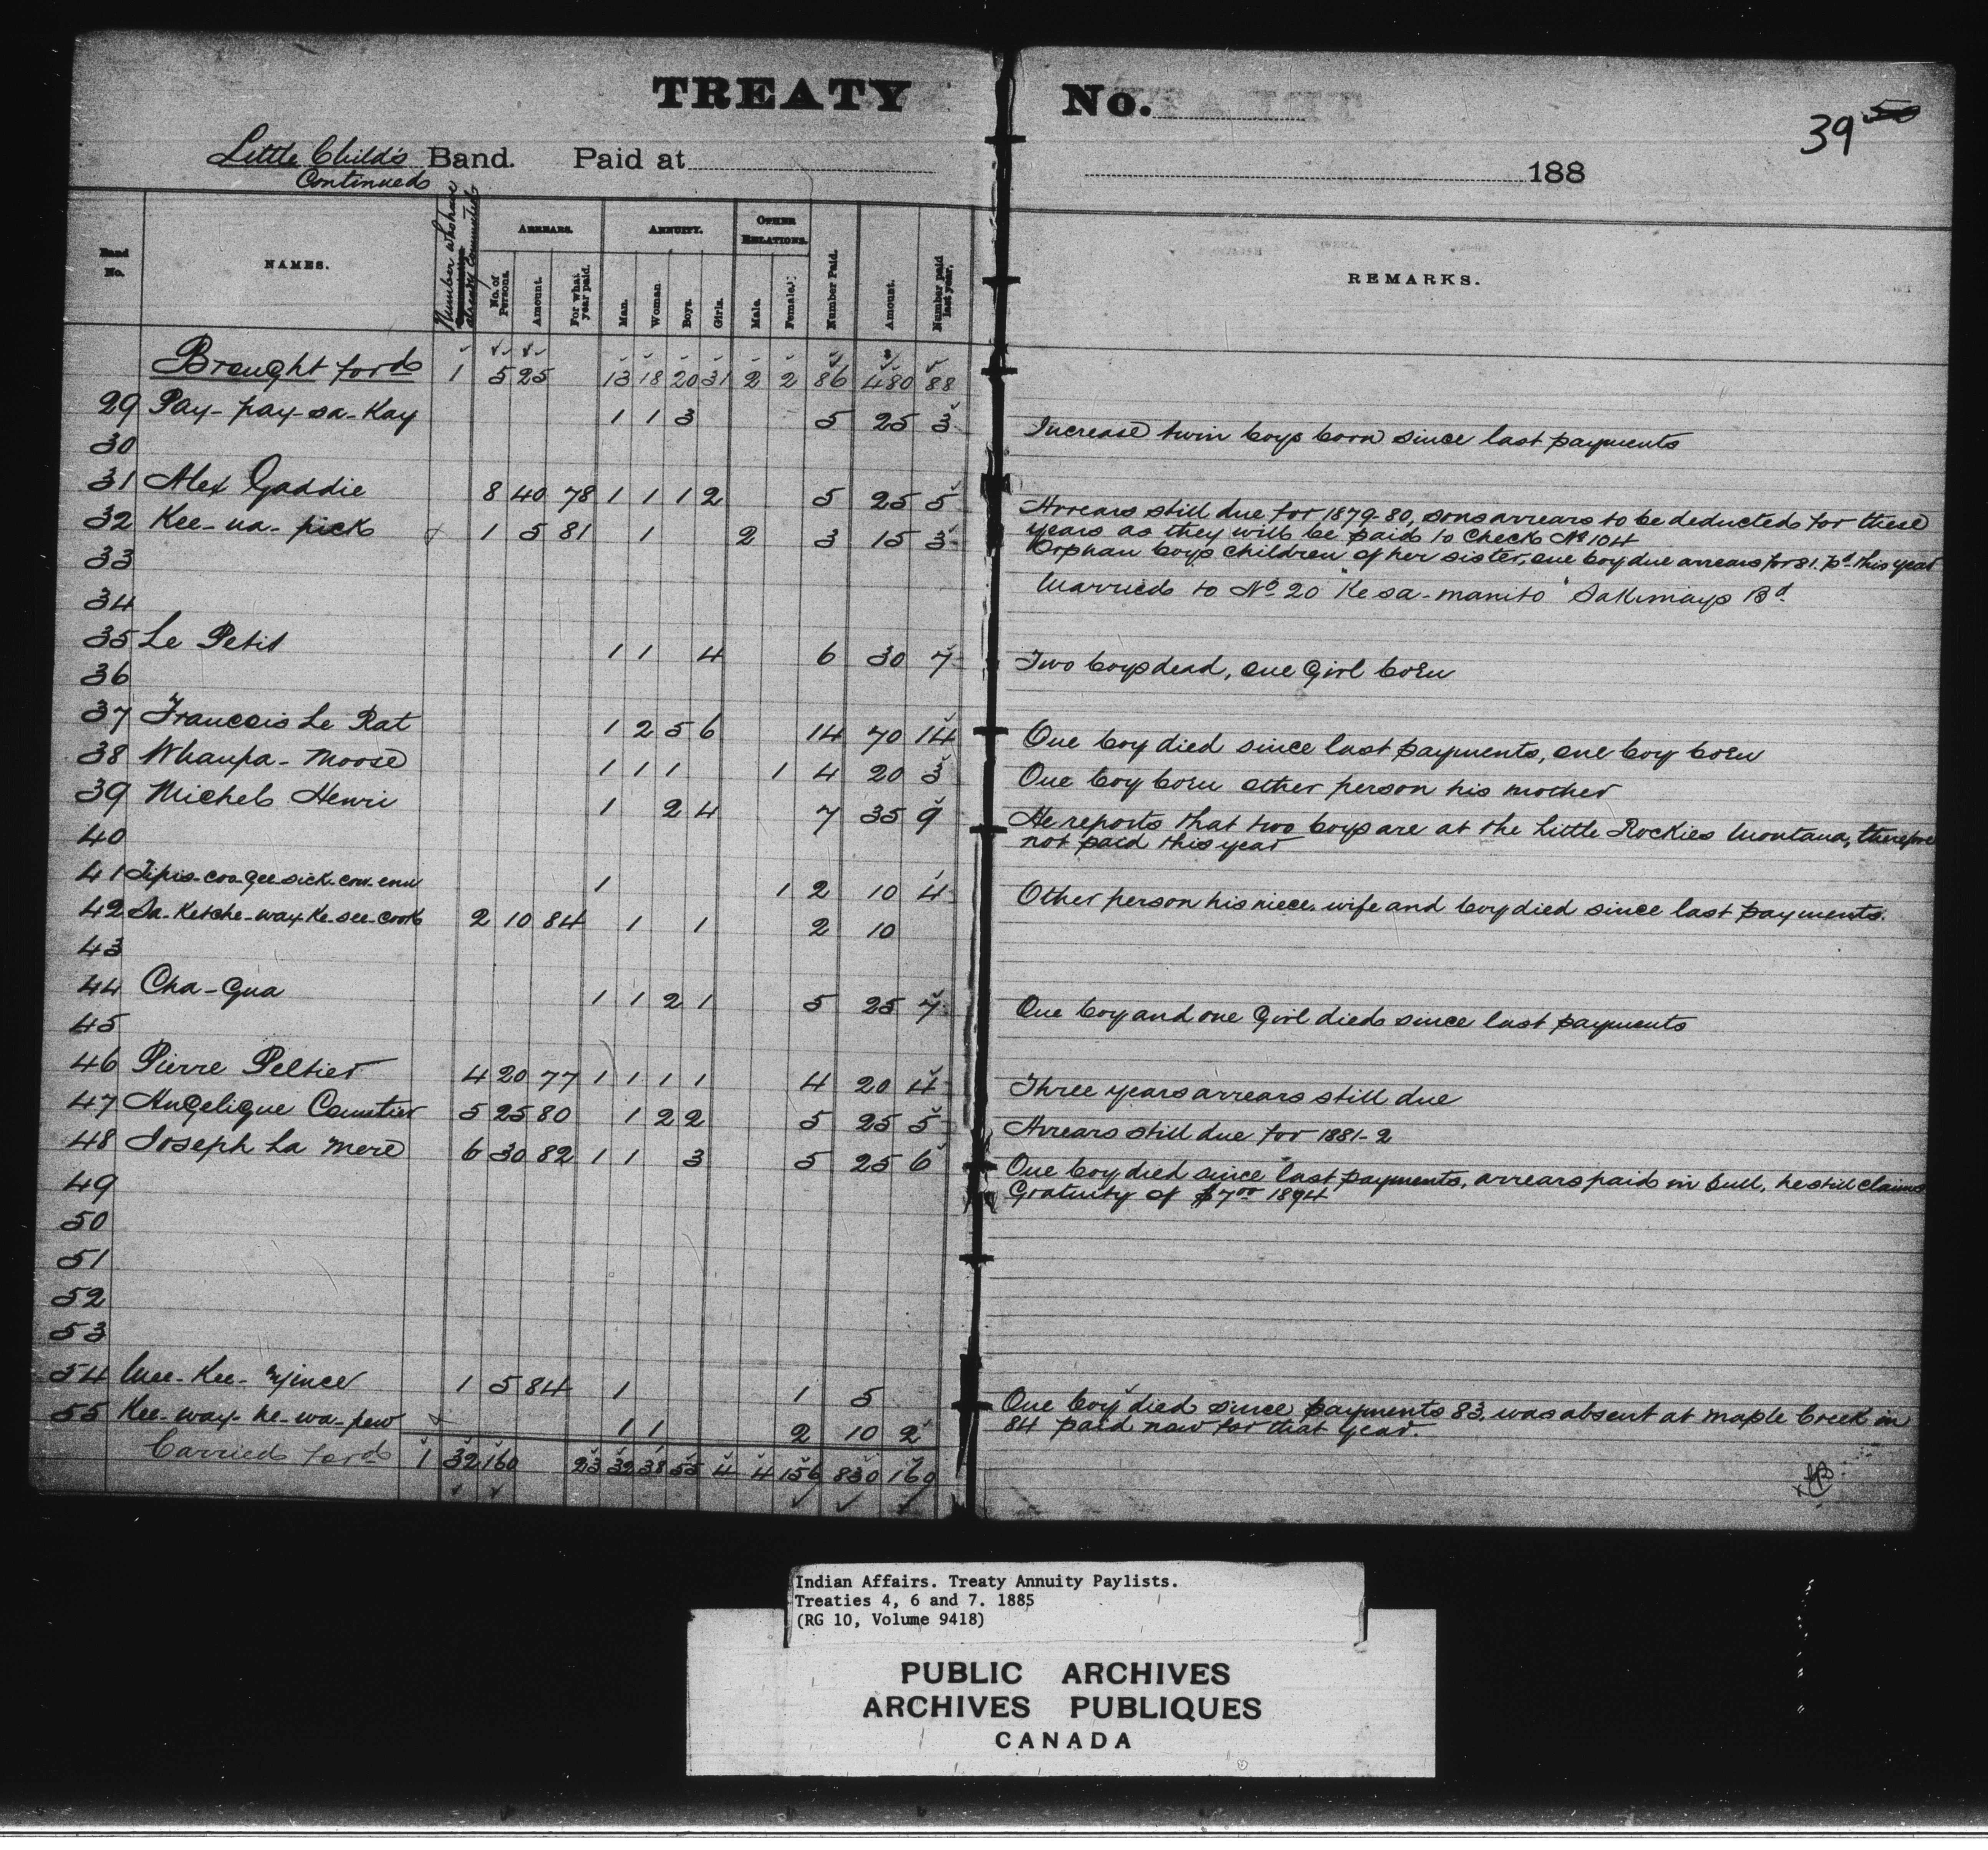 TREATY No.
39 50
Little Child's Band. Paid at 188
Continued
Band No. NAMES. Number who have already Commuted ARREARS. ANNUITY. OTHER RELATIONS. Number Paid. Amount. Number paid last year. REMARKS.
No. of Persons. Amount. For what year paid. Man. Woman. Boys. Girls. Male. Female.
Brought ford 1 5 25 13 18 20 31 2 2 86 480 88
29 Pay-pay-sa-Kay 1 1 3 5 25 3 Increase twin boys born since last payments
30
31 Alex Gaddie 8 40 78 1 1 1 2 5 25 5 Arrears still due for 1879-80, sons arrears to be deducted for these
years as they will be paid to Check No 104
32 Kee-na-pick 1 5 81 1 2 3 15 3 Orphan boys children of her sister, one boy due arrears for 81. pd. this year
33 Married to No 20 "Kesa-manito" Sakimays Bd.
34
35 Le Petit 1 1 4 6 30 7 Two boys dead, one Girl born
36
37 Francois Le Rat 1 2 5 6 14 70 14 One boy died since last payments, one boy born
38 Whaupa-Moose 1 1 1 1 4 20 3 One boy born other person his mother
39 Michel Henri 1 2 4 7 35 9 He reports that two boys are at the Little Rockies Montana, therefore
not paid this year
40
41 Tipis-coo-gee-sick-cow-enu 1 1 2 10 4 Other person his niece. wife and boy died since last payments.
42 Sa-Ketche-way-Ke-see-cook 2 10 84 1 1 2 10
43
44 Cha-Gua 1 1 2 1 5 25 7 One boy and one Girl died since last payments
45
46 Pierre Peltier 4 20 77 1 1 1 1 4 20 4 Three years arrears still due
47 Angelique 5 25 80 1 2 2 5 25 5 Arrears still due for 1881-2
48 Joseph La Mere 6 30 82 1 1 3 5 25 6 One boy died since last payments, arrears paid in full, he still claims
Gratuity of $7.00 1894
49
50
51
52
53
54 Mee-Kee-yince 1 5 84 1 1 5 One boy died since payments 83, was absent at Maple Creek in
84 paid now for that year.
55 Kee-way-ke-wa-pew 1 1 2 10 2
Carried ford 1 32 160 23 32 38 55 4 4 156 830 160
Indian Affairs. Treaty Annuity Paylists.
Treaties 4, 6 and 7. 1885
(RG 10, Volume 9418)
PUBLIC ARCHIVES
ARCHIVES PUBLIQUES
CANADA